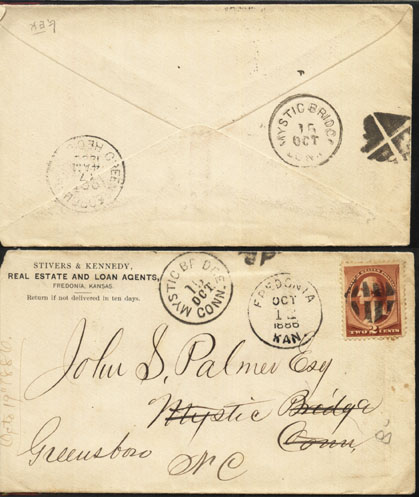 MYSTIC BRIDGE
15
OCT
CONN.
STIVERS & KENNEDY,
REAL ESTATE AND LOAN AGENTS,
FREDONIA, KANSAS.
Return if not delivered in ten days.
MYSTIC BRIDGE
15
OCT
CONN.
FREDONIA
OCT
12
1886
KAN.
TWO 2 CENTS
John S. Palmer Esq
Mystic Bridge
Conn,
Greensboro NC